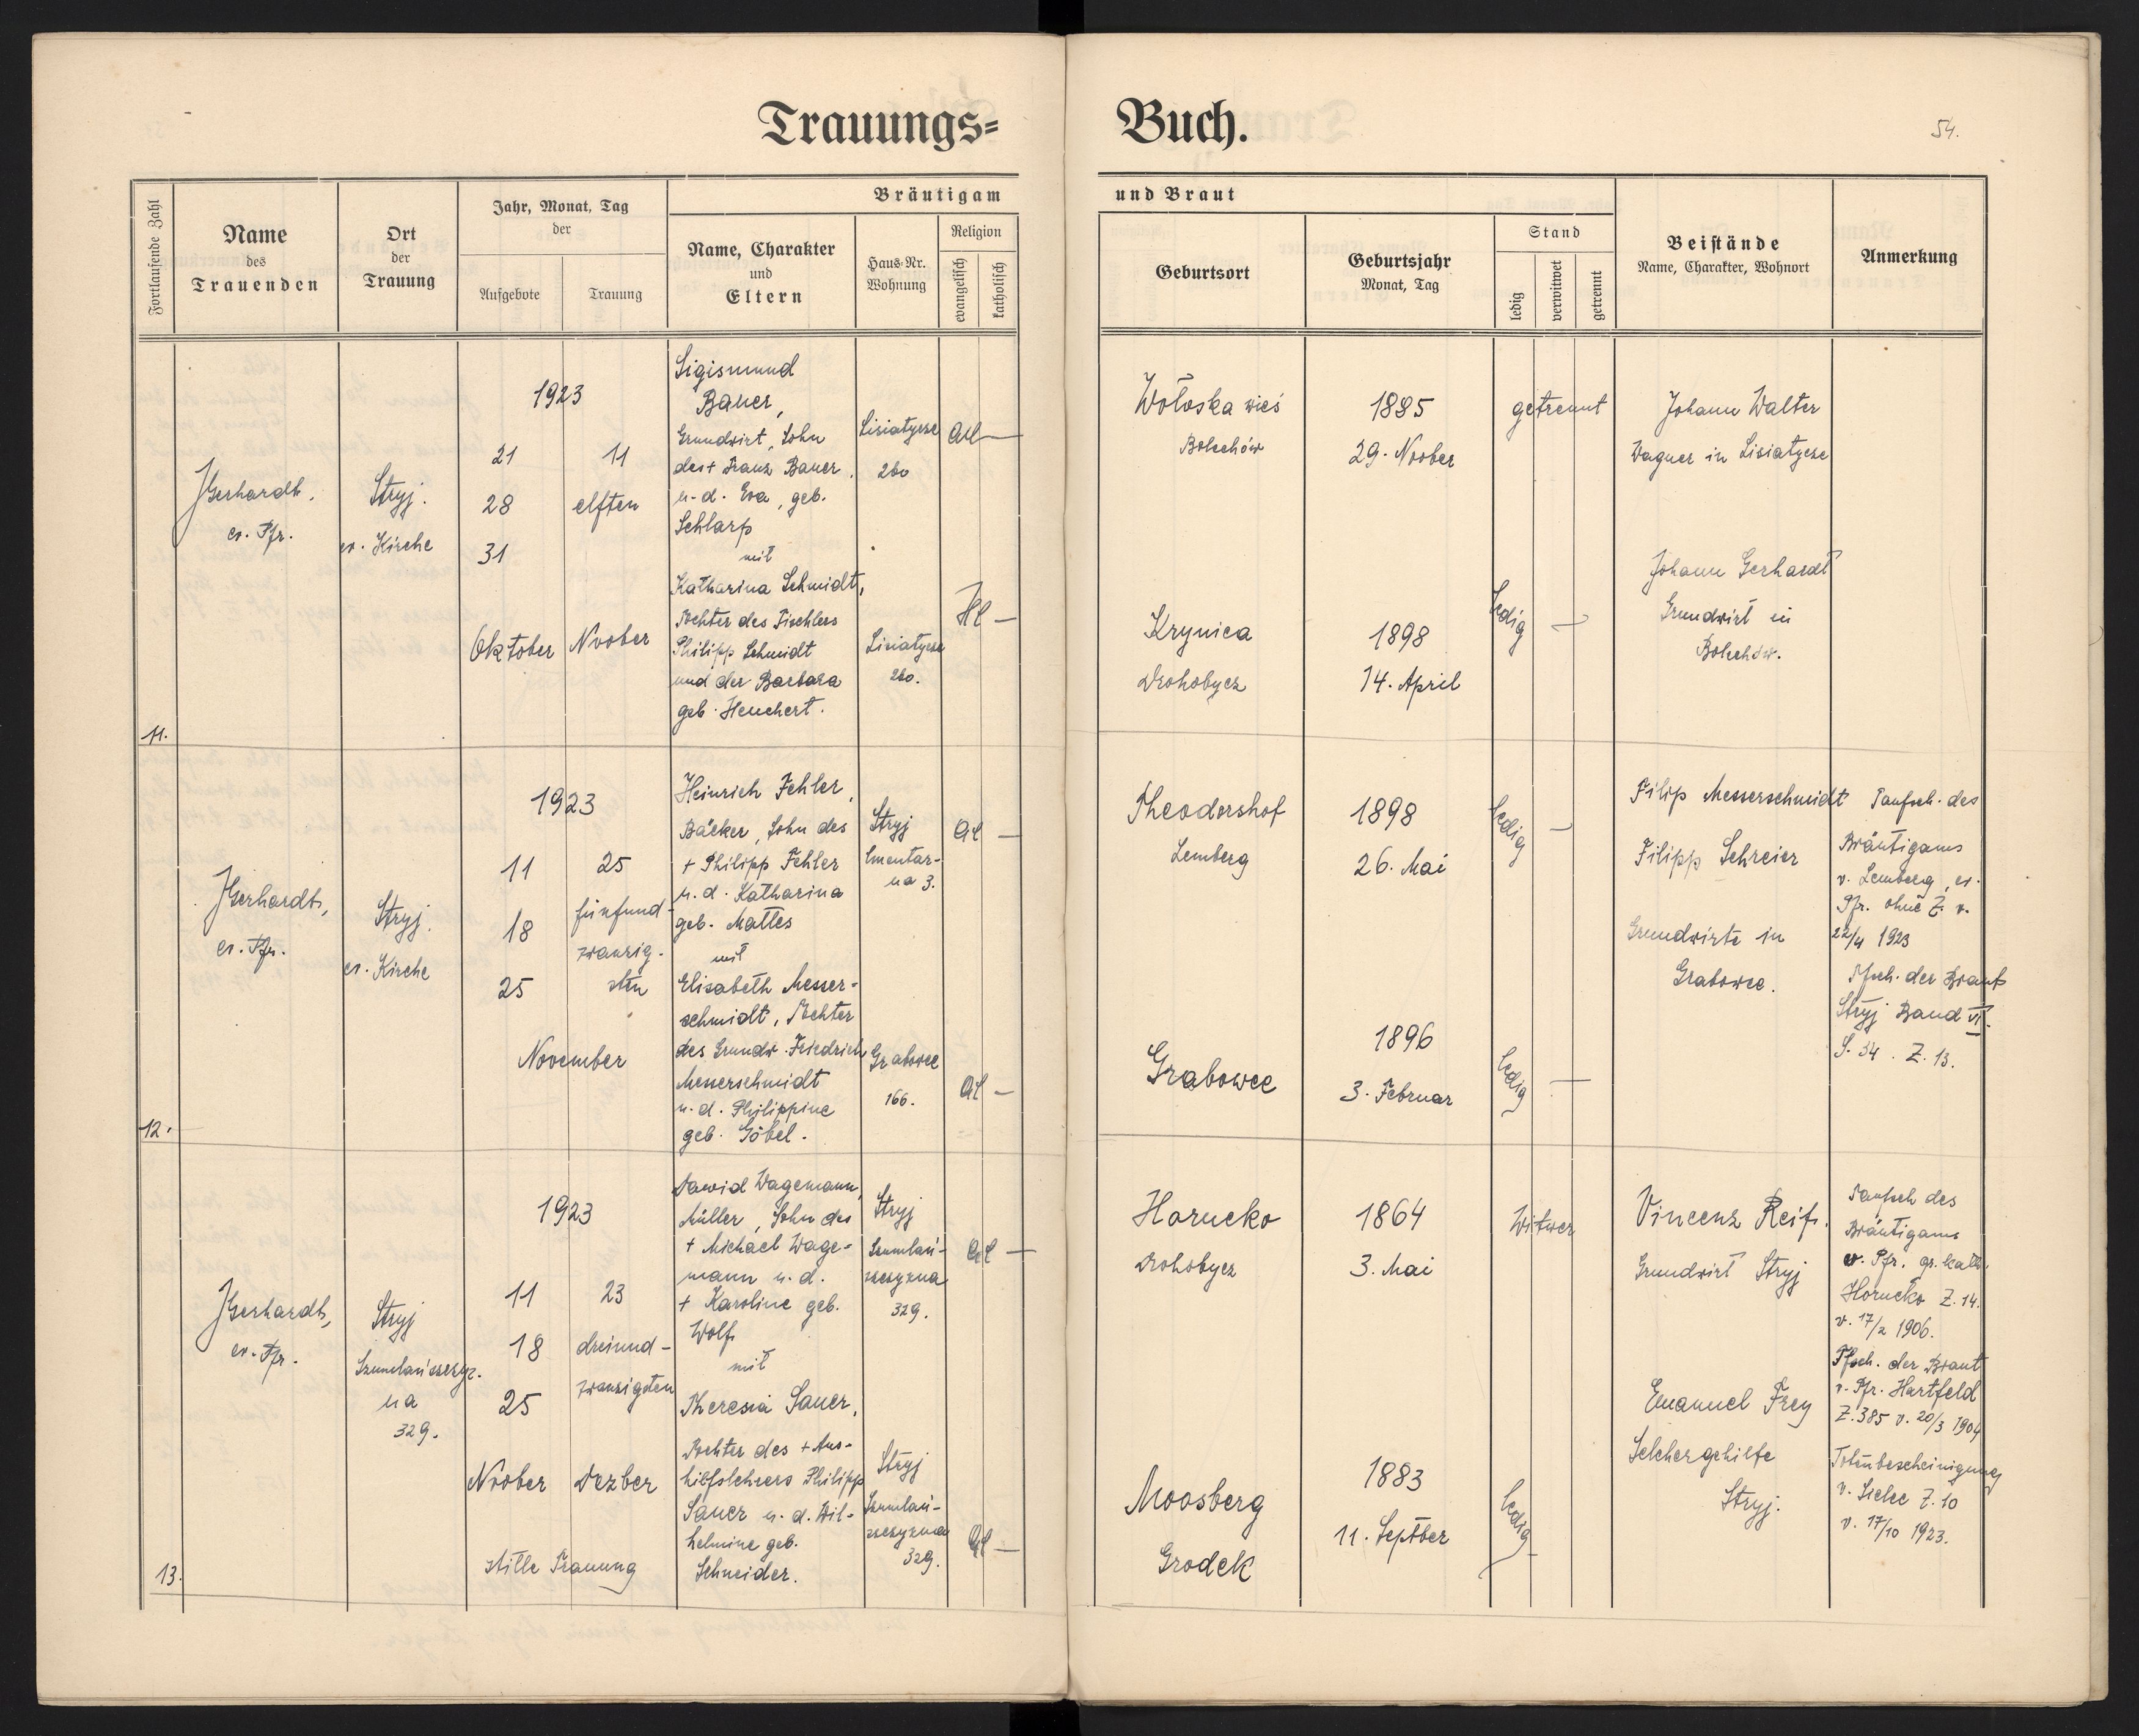 Trauungs=
Buch.
54.
Fortlaufende Zahl
Name
des
Trauenden
Ort
der
Trauung
Jahr, Monat, Tag
der
Aufgebote
Trauung
Bräutigam
Name, Charakter
und
Eltern
Haus-Nr.
Wohnung
Religion
evangelisch
katholisch
und Braut
Geburtsort
Geburtsjahr
Monat, Tag
Stand
ledig
verwitwet
getrennt
Beistände
Name, Charakter, Wohnort
Anmerkung
11.
JGerhardt,
ev. Pfr.
Stryj.
ev. Kirche
1923
21
28
31
Oktober
11
elften
Novber
Sigismund
Bauer,
Grundwirt, Sohn
des + Franz Bauer
u. d. Eva, geb.
Schlarp
mit
Katharina Schmidt,
Tochter des Tischlers
Philipp Schmidt
und der Barbara
geb. Heuchert.
Lisiatycze
260
Lisiatycze
260.
Wołoska wieś
Bolechów
1885
29. Novber
getrennt
Johann Walter
Wagner in Lisiatycze
Krynica
Drohobycz
1898
14. April
ledig
Johann Gerhardt
Grundwirt in
Bolechów.
12.
JGerhardt,
ev. Pfr.
Stryj.
ev. Kirche
1923
11
18
25
25
fünfund-
zwanzig-
sten
November
Heinrich Fehler,
Bäcker, Sohn des
+ Philipp Fehler
u. d. Katharina
geb. Mattes
mit
Elisabeth Messer-
schmidt, Tochter
des Grundw. Friedrich
Messerschmidt
u. d. Philippine
geb. Göbel.
Stryj
Cmentar-
na 3.
Grabowce
166.
Theodorshof
Lemberg
1898
26. Mai
ledig
Grabowce
1896
3. Februar
ledig
Filip Messerschmidt
Filipp Schreier
Grundwirte in
Grabowce.
Taufsch. des
Bräutigams
v. Lemberg, ev.
Pfr. ohne Z. v.
22/4 1923
Tfsch. der Braut
Stryj Band VI.
S. 34. Z. 13.
13.
JGerhardt,
ev. Pfr.
Stryj
Szumlańszczyz-
na
329.
1923
11
18
25
Novber
23
dreiund-
zwanzigsten
Dezber
stille Trauung
Dawid Wagemann,
Müller, Sohn des
+ Michael Wage-
mann u. d.
+ Karoline geb.
Wolf
mit
Theresia Sauer,
Tochter des + Aus-
hilfslehrers Philipp
Sauer u. d. Wil-
helmine geb.
Schneider.
Stryj
Szumlań-
szczyzna
329.
Stryj
Szumlań-
szczyzna
329.
Horucko
Drohobycz
1864
3. Mai
Witwer
Moosberg
Grodek
1883
11. Septber
ledig
Vincenz Reif.
Grundwirt Stryj
Emanuel Frey
Selchergehilfe
Stryj.
Taufsch des
Bräutigams
v. Pfr. gr. kath.
Horucko Z. 14.
v. 17/2 1906.
Tfsch. der Braut
v. Pfr. Hartfeld
Z. 385 v. 20/3 1904
Totenbescheinigung
v. Sielec Z. 10
v. 17/10 1923.